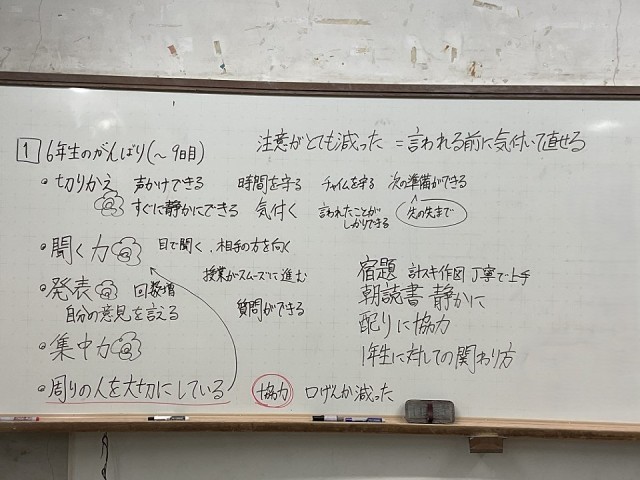 1 6年生のがんばり(～9日目)
注意がとても減った =言われる前に気付いて直せる
・切りかえ 声かけできる 時間を守る チャイムを守る 次の準備ができる
すぐに静かにできる 気付く 言われたことがしかりできる 先の先まで
・聞く力 目で聞く、相手の方を向く
授業がスムーズに進む
・発表 回数増 質問ができる
自分の意見を言える
・集中力
・周りの人を大切にしている 協力 口げんか減った
宿題 計スキ作図 丁寧で上手
朝読書 静かに
配りに協力
1年生に対しての関わり方